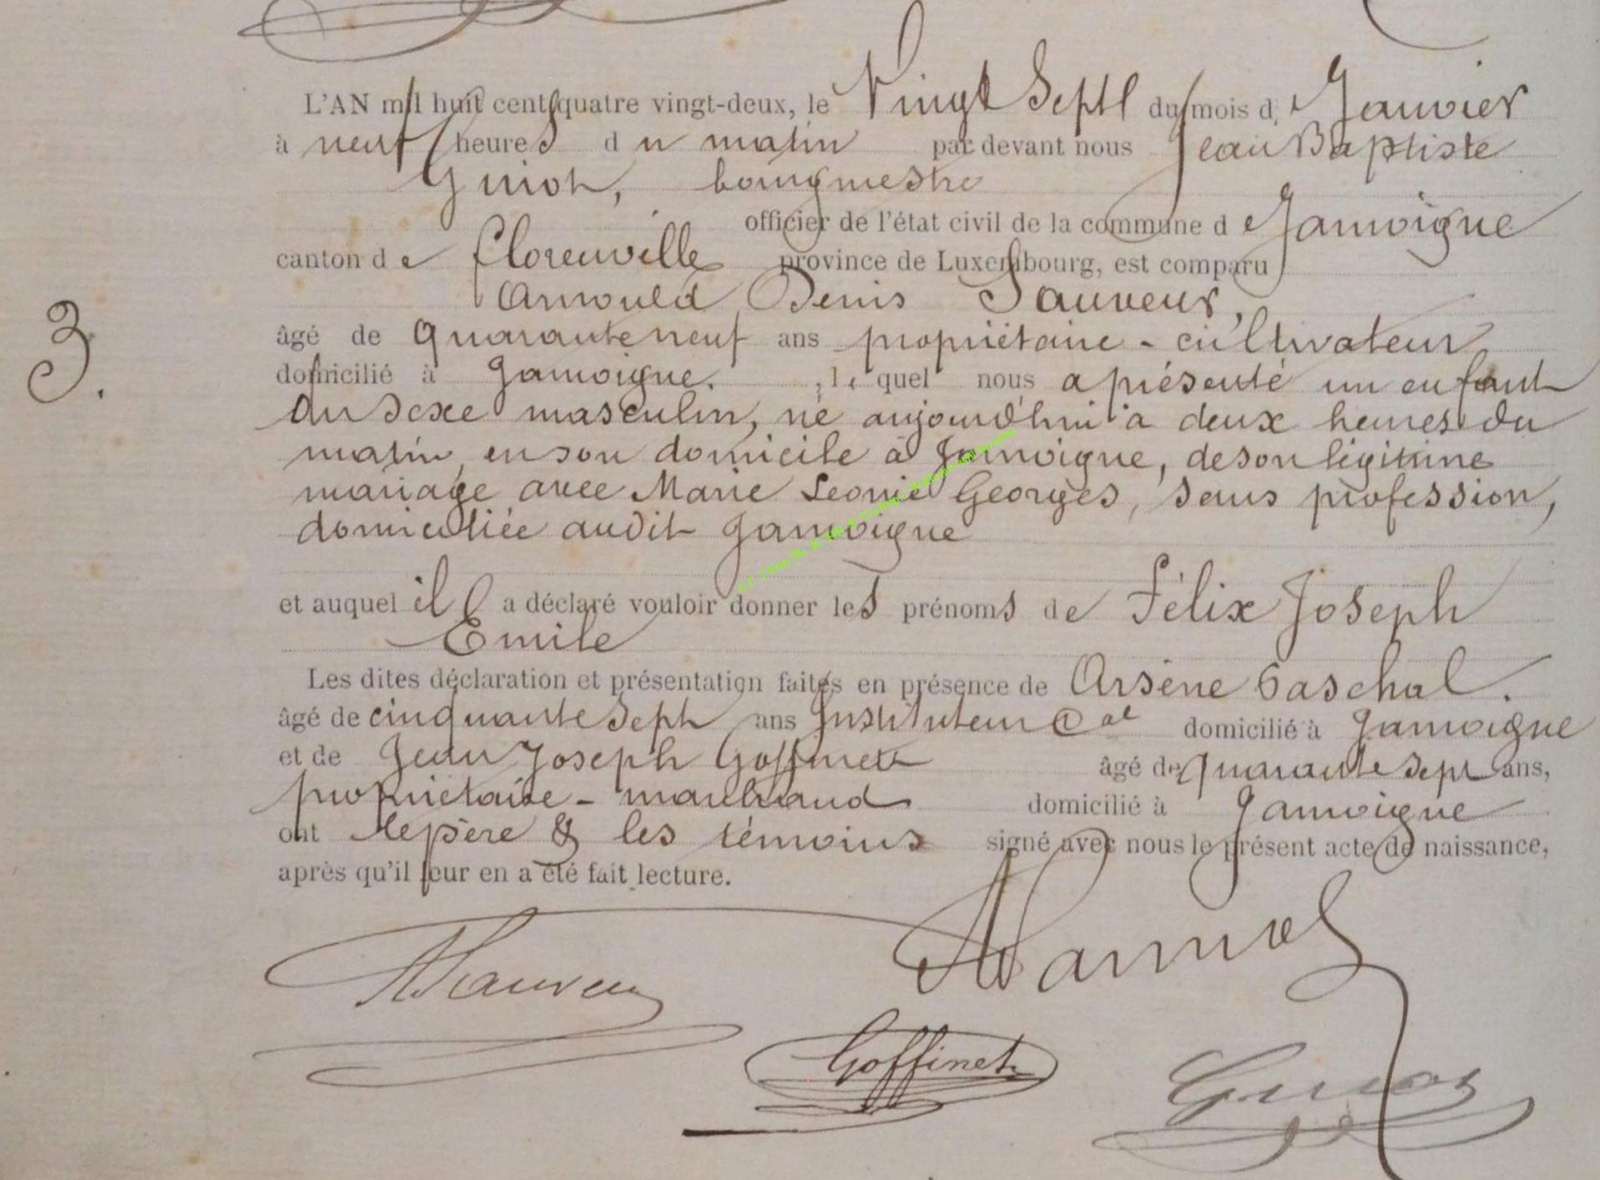 L'AN mil huit cent quatre vingt-deux, le Vingt Sept du mois de Janvier
à neuf heures du matin par devant nous Jean Baptiste
Guiot, bourgmestre
officier de l'état civil de la commune de Jamoigne
canton de Florenville province de Luxembourg, est comparu
Arnould Denis Sauveur,
âgé de quarante neuf ans propriétaire - cultivateur
domicilié à Jamoigne, lequel nous a présenté un enfant
du sexe masculin, né aujourd'hui à deux heures du
matin, en son domicile à Jamoigne, de son légitime
mariage avec Marie Leonie Georges, sans profession,
domiciliée audit Jamoigne
3.
et auquel il a déclaré vouloir donner les prénoms de Félix Joseph
Emile
Les dites déclaration et présentation faites en présence de Arsène Paschal.
âgé de cinquante sept ans Instituteur Cal domicilié à Jamoigne
et de Jean Joseph Goffinet âgé de quarante sept ans,
propriétaire - marchand domicilié à Jamoigne
ont le père & les témoins signé avec nous le présent acte de naissance,
après qu'il leur en a été fait lecture.
ASauveur
Goffinet
Guiot